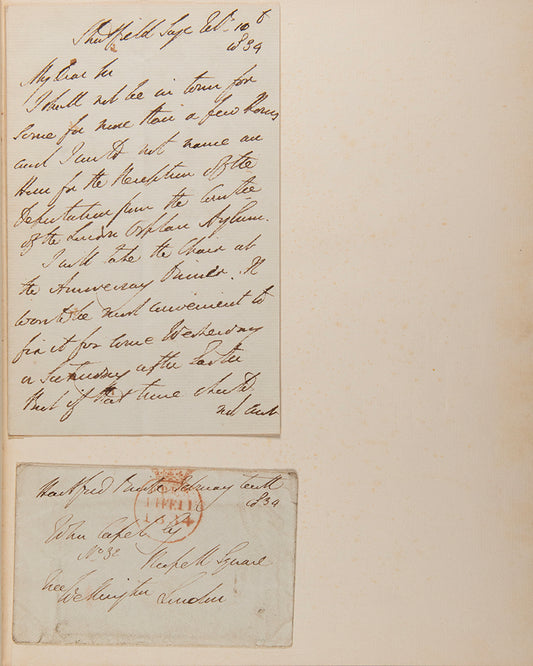 Strathfield Saye Feb. 10th
1834
My Dear Sir
I shall not be in town for
some for more than a few Hours
and I could not name an
Hour for the Reception of the
Deputation from the Comtee
of the London Orphan Asylum.
I will take the Chair at
the Anniversary Dinner. It
would be most convenient to
fix it for some Wednesday
or Saturday after Easter
But if that time should
not suit
Hartford Bridge February tenth
1834
FREE
11FE11
1834
John Capel Esq
No 32
Russell Square
London
Wellington